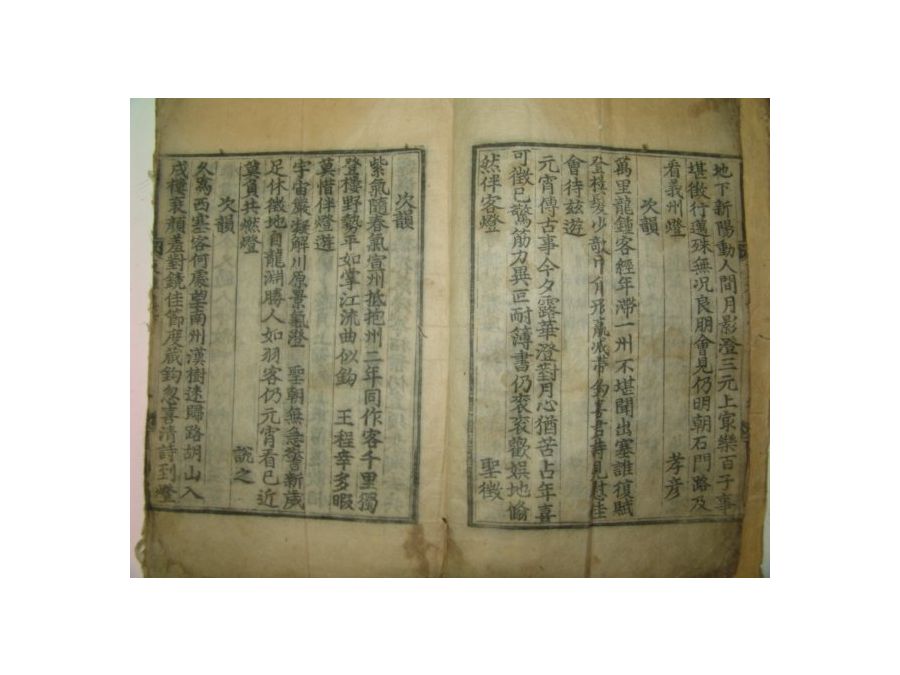 地下新陽動人間月影澄三元上家樂百子事
堪徵行邁殊無况良朋會見仍明朝石門路及
看義州燈 孝彦
次韻
萬里龍鍾客經年滯一州不堪聞出塞誰復賦
登樓髮少敵形羸減帶鈎喜君詩見慰佳
會待玆遊
元宵傳古事今夕露華澄對月心猶苦占年喜
可徵已驚筋力異叵耐簿書仍衮衮歡娱地偷
然伴客燈 聖徵
次韻
紫氣隨春氣宣州抵抱州二年同作客千里獨
登樓野勢平如掌江流曲似鈎 王程幸多暇
莫惜伴燈遊
宇宙嚴凝解川原景氣澄 聖朝無急警新歲
足休徵地自龍淵勝人如羽客仍元宵看已近
莫負共燃燈 說之
次韻
久爲西塞客何處望南州漢樹迷歸路胡山入
戍樓衰顏羞對鏡佳節度藏鈎忽喜清詩到燈